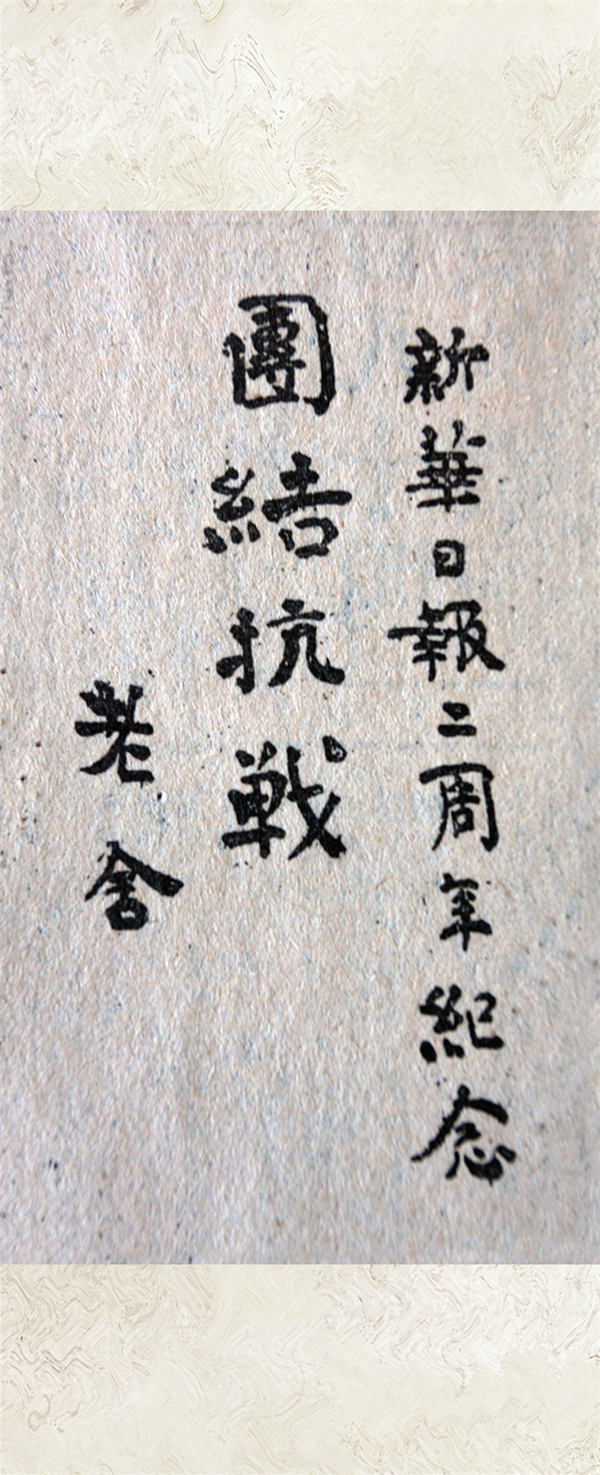 新華日報二周年紀念
團結抗戰
老舍